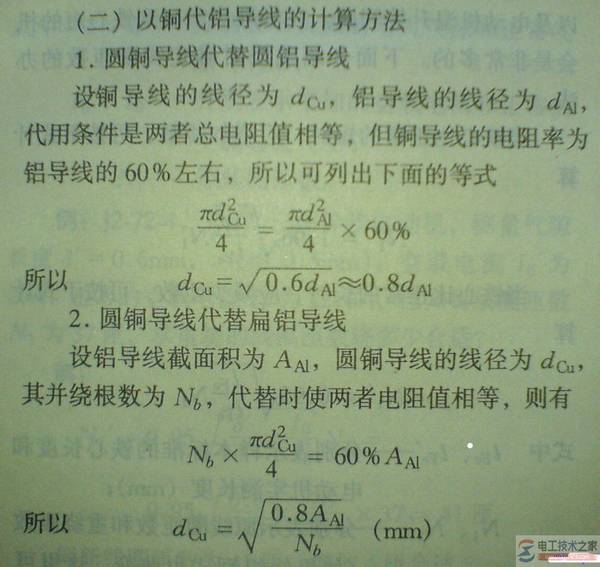 (二) 以铜代铝导线的计算方法
1. 圆铜导线代替圆铝导线
设铜导线的线径为 d_Cu，铝导线的线径为 d_Al，
代用条件是两者总电阻值相等，但铜导线的电阻率为
铝导线的 60%左右，所以可列出下面的等式
πd²_Cu/4 = πd²_Al/4 × 60%
所以 d_Cu = √(0.6d_Al) ≈ 0.8d_Al
2. 圆铜导线代替扁铝导线
设铝导线截面积为 A_Al，圆铜导线的线径为 d_Cu，
其并绕根数为 N_b，代替时使两者电阻值相等，则有
N_b × πd²_Cu/4 = 60% A_Al
所以 d_Cu = √(0.8A_Al/N_b) (mm)
电工技术之家